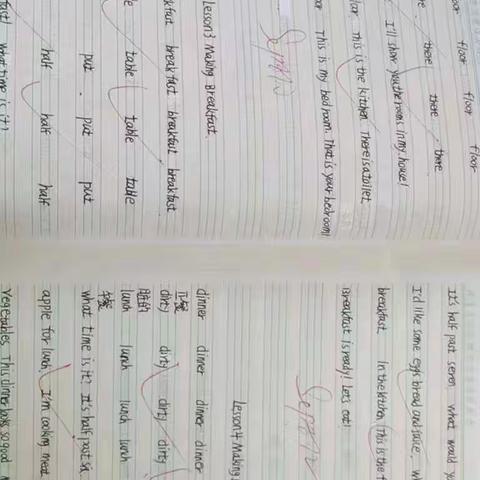 floor floor floor
there there there
I'll show you the rooms in my house!
This is the kitchen. There is a toilet.
This is my bedroom. That is your bedroom!
Lesson 3 Making Breakfast.
breakfast breakfast breakfast
table table table
put put put
half half half
What time is it?
It's half past seven. What would
I'd like some eggs bread and juice.
breakfast In the kitchen This is the
Breakfast is ready! Let's eat!
Lesson 4 Making
dinner dinner dinner dinner
正餐
dirty dirty dirty
脏的
lunch lunch lunch lunch
午餐
What time is it? It's half past six.
apple for lunch. I'm cooking meat
Vegetables. This dinner looks so good